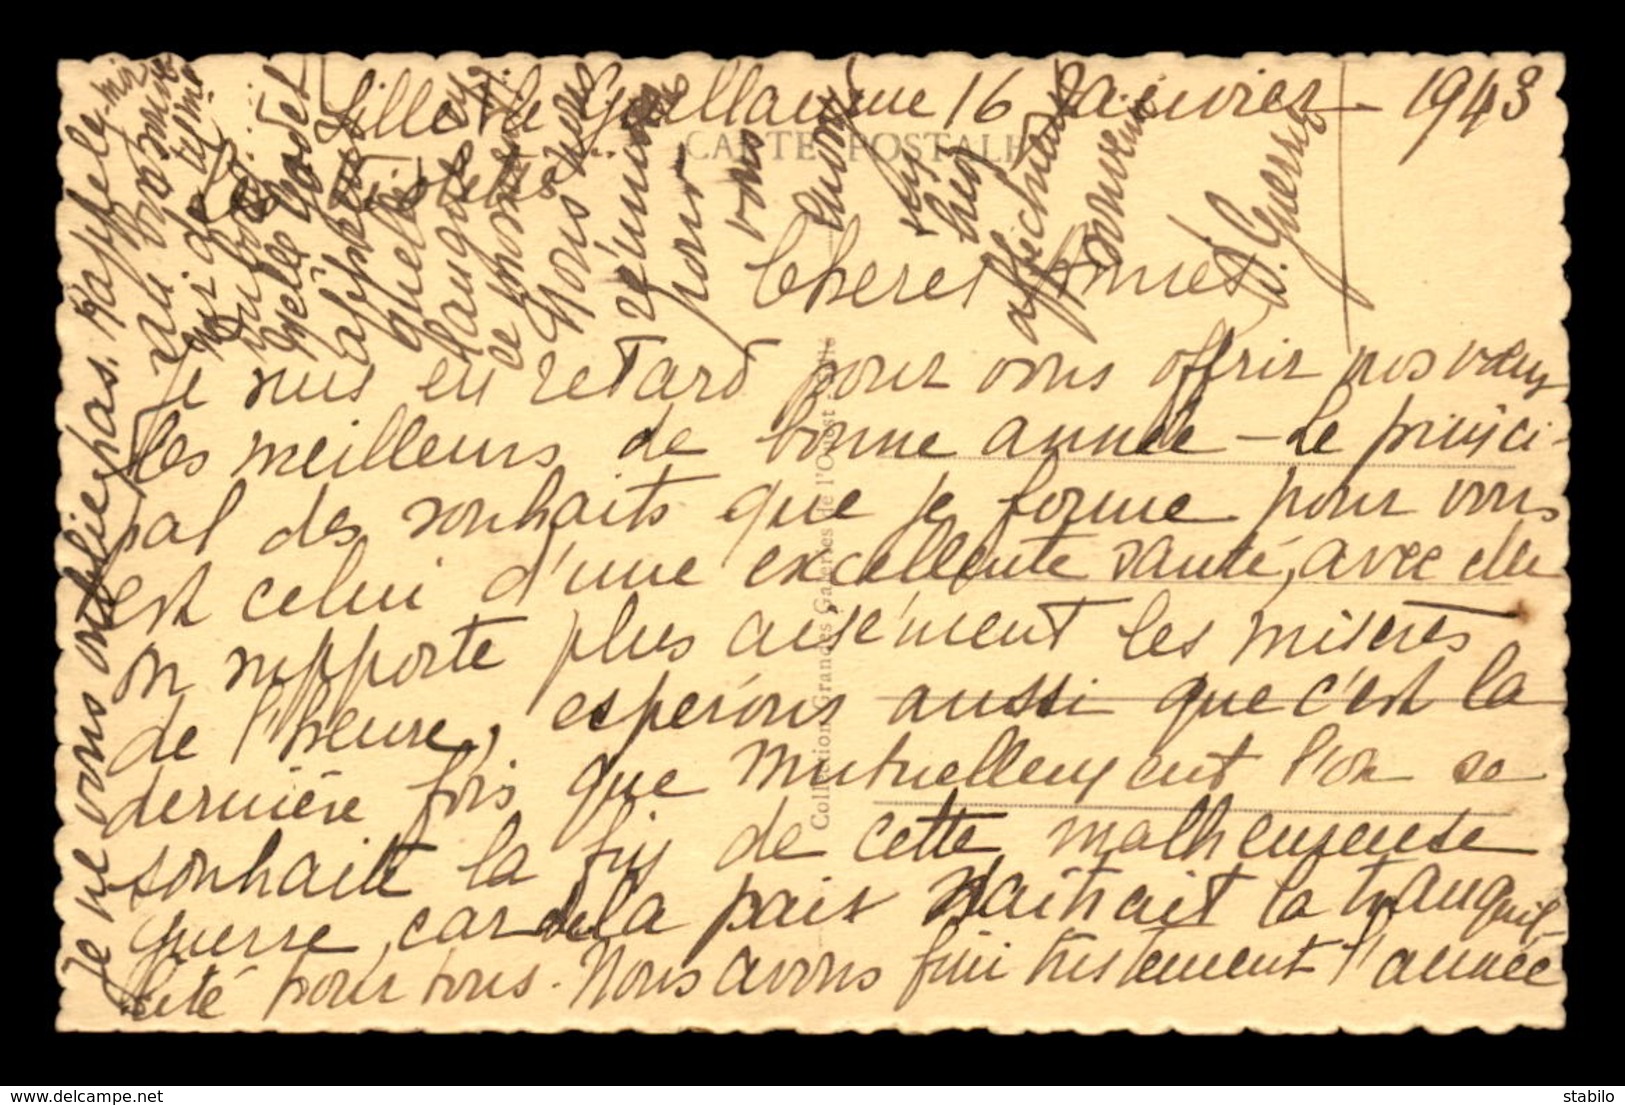 Lillet le Guillaume 16 Janvier 1943
Les Violettes
CARTE POSTALE
Cheres Amies
Je suis en retard pour vous offrir nos vœux
les meilleurs de bonne année - Le princi-
pal des souhaits que je forme pour vous
est celui d'une excellente santé, avec elle
on supporte plus aisément les miseres
de l'heure, esperons aussi que c'est la
dernière fois que mutuellement l'on se
souhaite la fin de cette malheureuse
guerre, car de la paix naîtrait la tranquil-
lité pour tous. Nous avons fini tristement l'année
Je ne vous oublie pas. Rappele-moi
au bon
Melle
affectueux
quelle
langue
ce
Nous
réunir
pour
vous
bien
affectueux
souvenir
J. Guerry
Collection Grandes Galeries de l'Ouest